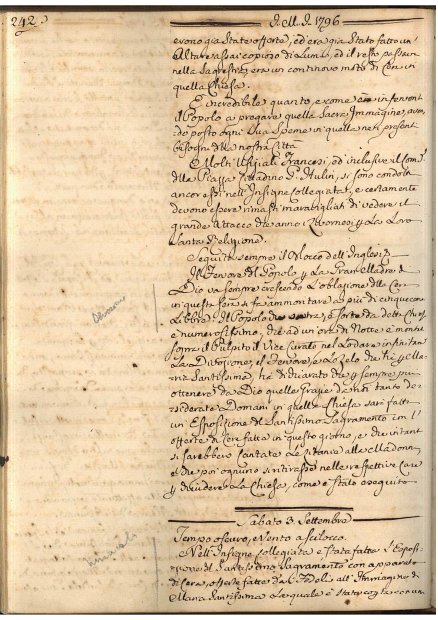 242.
A. M. D. 1796
erono già State offerte, ed era già Stato fatto un'
Altare assai copioso di Lumi, ed il resto passava
nella Sagrestia, era un continovo moto di Cera in
quella Chiesa.
È incredibile quanto, e come in
il Popolo a pregare quella Sacra Immagine, aven,
do posto ogni Sua Speme in quella nelli presenti
bisogni della nostra Città
Molti Uffiziali Francesi, ed inclusive il Com.
della Piazza Cittadino G. Hulin, si sono condotti
ancor essi nell'Insigne Collegiata, e certamente
devono essere rimasti maravigliati di vedere il
grande Attacco che anno i Livornesi per La Loro
Santa Religione.
Seguita sempre il Blocco dell'Inglesi
Il Fervore del Popolo per La Gran Madre di
Dio va sempre crescendo L'oblazione della Cera
in questa sera si fa ammontare a più di cinquecento
Libbre. Il Popolo che è sorte da detta Chiesa
numerosissimo, che ad un'ora di Notte è montato
sopra il Pulpito il Vice Curato nel Lodare infinitam.
La Divozione, il Fervore, e Lo Zelo che ha per Ma
ria Santissima, ha dichiarato che per sempre più
ottenere da Dio quelle Grazie tanto de
siderate, Domani in quella Chiesa sarà fatta
un'Esposizione del Santissimo Sagramento con l'
offerte di Cera fatte in questo giorno, e che intanto
si sarebbero Cantate Le Litanie alla Madonna,
e che poi ognuno si ritirasse nelle respettive Case
per chiudere La Chiesa, come è stato eseguito
Sabato 3. Settembre
Tempo oscuro, e Vento a scilocco.
Nell'Insigne Collegiata è stata fatta L'Esposi-
zione del Santissimo Sagramento con apparato
di Cera, offerte fatte da Fedeli all'Immagine di
Maria Santissima La quale è stata